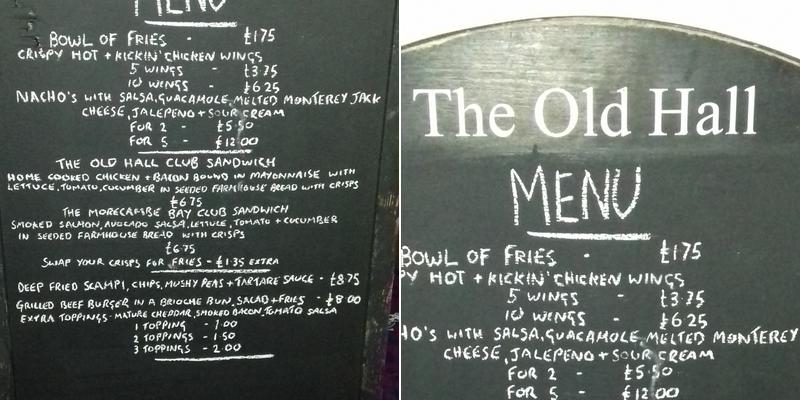 MENU
BOWL OF FRIES - £1.75
CRISPY HOT + KICKIN' CHICKEN WINGS
5 WINGS - £3.75
10 WINGS - £6.25
NACHO'S WITH SALSA, GUACAMOLE, MELTED MONTEREY JACK
CHEESE, JALEPENO + SOUR CREAM
FOR 2 - £5.50
FOR 5 - £12.00
THE OLD HALL CLUB SANDWICH
HOME COOKED CHICKEN + BACON BOUND IN MAYONNAISE WITH
LETTUCE, TOMATO, CUCUMBER IN SEEDED FARMHOUSE BREAD WITH CRISPS
£6.75
THE MORECAMBE BAY CLUB SANDWICH
SMOKED SALMON, AVOCADO SALSA, LETTUCE, TOMATO + CUCUMBER
IN SEEDED FARMHOUSE BREAD WITH CRISPS
£6.75
SWAP YOUR CRISPS FOR FRIES - £1.35 EXTRA
DEEP FRIED SCAMPI, CHIPS, MUSHY PEAS + TARTARE SAUCE - £8.75
GRILLED BEEF BURGER IN A BRIOCHE BUN, SALAD + FRIES - £8.00
EXTRA TOPPINGS - MATURE CHEDDAR, SMOKED BACON, TOMATO SALSA
1 TOPPING - 1.00
2 TOPPINGS - 1.50
3 TOPPINGS - 2.00
The Old Hall
MENU
BOWL OF FRIES - £1.75
PY HOT + KICKIN' CHICKEN WINGS
5 WINGS - £3.75
10 WINGS - £6.25
HO'S WITH SALSA, GUACAMOLE, MELTED MONTEREY
CHEESE, JALEPENO + SOUR CREAM
FOR 2 - £5.50
FOR 5 - £12.00